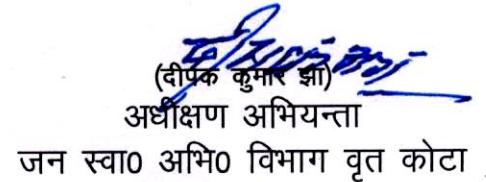 (दीपक कुमार झा)
अधीक्षण अभियन्ता
जन स्वा0 अभि0 विभाग वृत कोटा